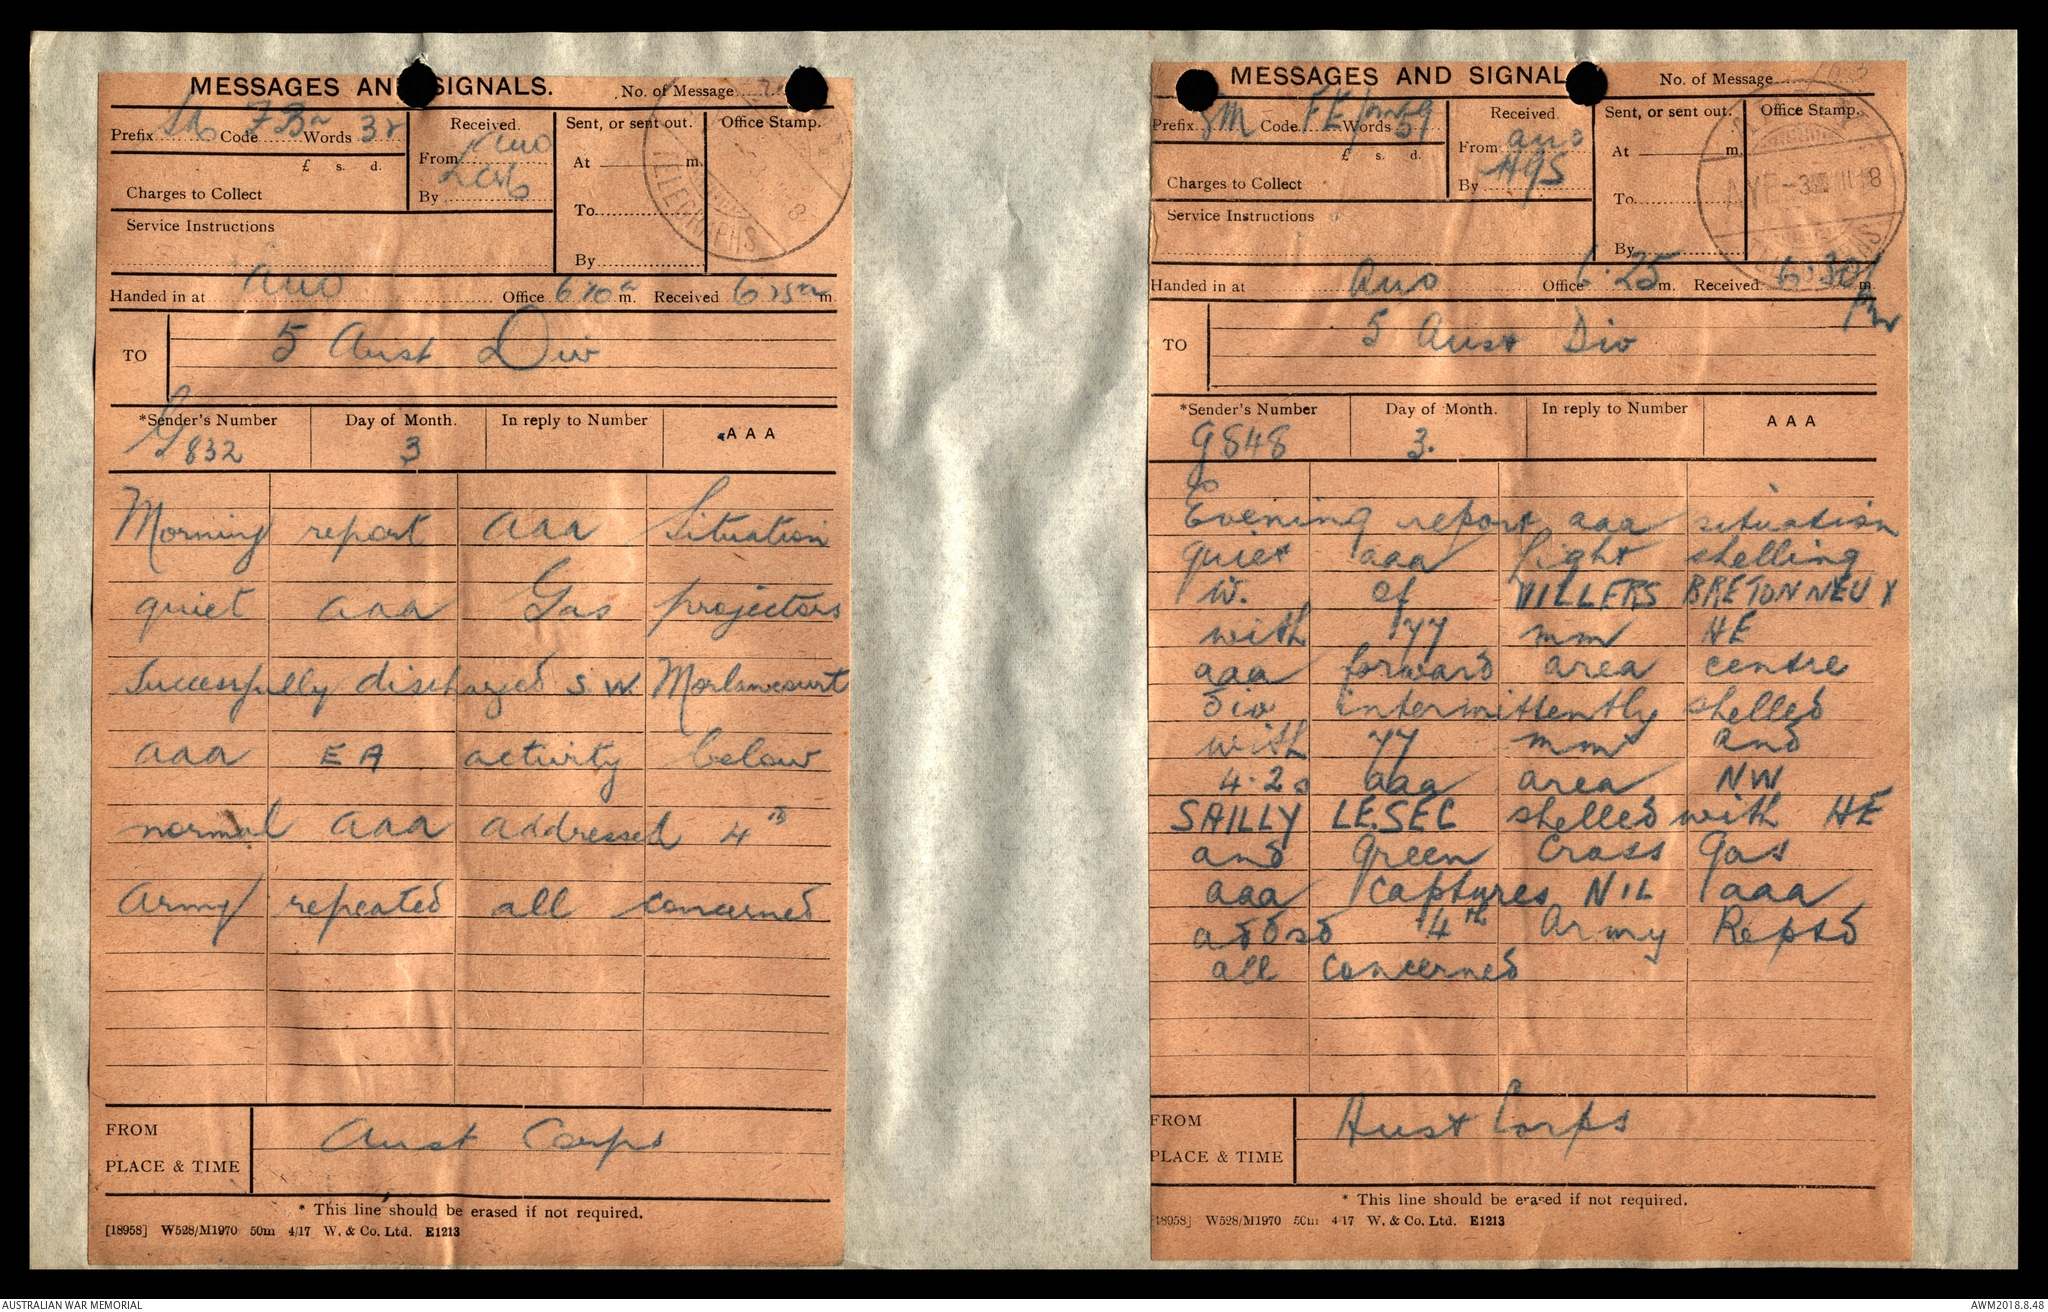 MESSAGES AND SIGNALS.
No. of Message
Prefix Code Words 32
Received.
Sent, or sent out.
Office Stamp.
£ s. d.
From
At m.
Charges to Collect
By
To
TELEGRAPHS
Service Instructions
By
Handed in at Office m. Received m.
TO 5 Aust Div
*Sender's Number Day of Month. In reply to Number AAA
G832 3
Morning report aaa Situation
quiet aaa Gas projectors
successfully discharged S W Morlancourt
aaa E A activity below
normal aaa addressed 4th
Army repeated all concerned
FROM Aust Corps
PLACE & TIME
* This line should be erased if not required.
[18958] W528/M1970 50m 4/17 W. & Co. Ltd. E1213
MESSAGES AND SIGNAL
No. of Message
Prefix SM Code Words 59
Received
Sent, or sent out.
Office Stamp.
£ s. d.
From
At m.
Charges to Collect
By
To
Service Instructions
By
Handed in at Office 6.25 m. Received 6.30 m.
TO 5 Aust Div
*Sender's Number Day of Month. In reply to Number AAA
G848 3.
Evening report aaa situation
quiet aaa light shelling
W. of VILLERS BRETONNEUX
with 77 mm HE
aaa forward area centre
Div intermittently shelled
with 77 mm and
4.2s aaa area NW
SAILLY LE SEC shelled with HE
and Green Cross Gas
aaa captures NIL aaa
addsd 4th Army Reptd
all concerned
FROM Aust Corps
PLACE & TIME
* This line should be erased if not required.
18958] W528/M1970 50m 4/17 W. & Co. Ltd. E1213
AUSTRALIAN WAR MEMORIAL
AWM2018.8.48